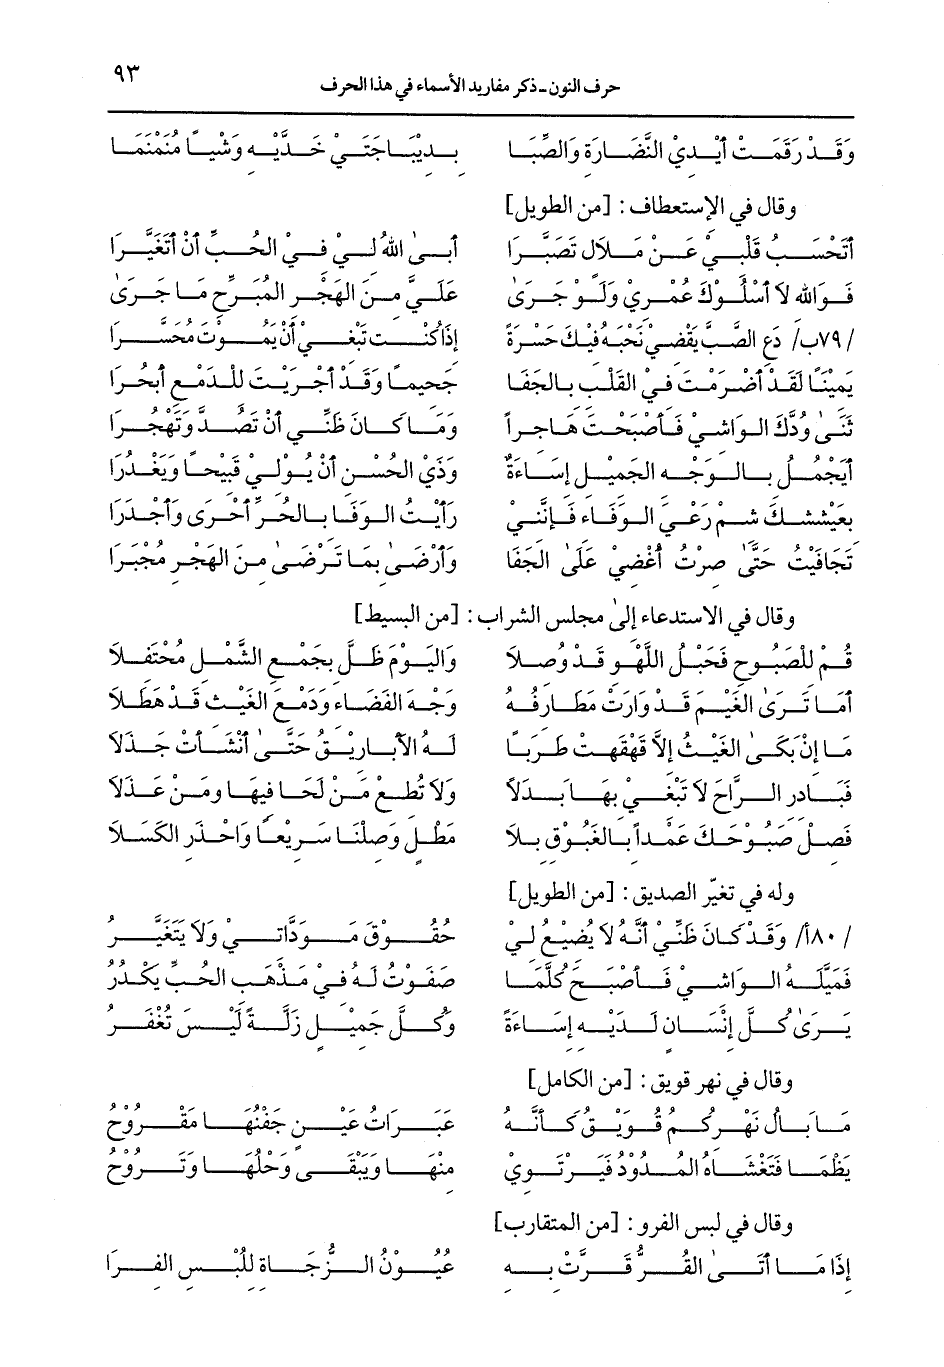 ٩٣
حرف النون ـ ذكر مفاريد الأسماء في هذا الحرف
وَقَدْ رَقَمَتْ أَيْدي النَّضَارَة وَالصِّبَا بديْبَاجَتي خَدَّيْه وَشْياً مُنَمْنَمَا
وقال في الإستعطاف: [من الطويل]
أتَحْسَبُ قَلْبيْ عَنْ مَلاَل تَصَبَّرَا أبىٰ اللهُ ليْ في الحُبِّ أنْ أتَغَيَّرَا
فَوَالله لاَ أسْلُوكَ عُمْري وَلَوْ جَرَىٰ عَلَيَّ منَ الهَجْر المُبَرِّح مَا جَرَىٰ
/٧٩ب/ دَع الصَّبَّ يَقْضيْ نَحْبَهُ فيْكَ حَسْرَةً إذَا كُنْتَ تَبْغيْ أنْ يَمُوْتَ مُحَسَّرَا
يَميْنَاً لَقَدْ أضْرَمْتَ فيْ القَلْب بالجَفَا جَحيمَاً وَقَدْ أجْرَيْتَ للدَّمْع أبْحُرَا
ثَنَىٰ وُدَّكَ الوَاشيْ فَأصْبَحْتَ هَاجراً وَمَا كَانَ ظَنِّي أنْ تَصُدَّ وَتَهْجُرَا
أيَجْمُلُ بالوَجْه الجَميْل إسَاءَةٌ وَذيْ الحُسْن أنْ يُوليْ قَبيْحَاً وَيَغْدُرَا
بعَيْشكَ شمْ رَعْيَ الوَفَاء فَإنَّنيْ رَأيْتُ الوَفَا بالحُرِّ أحْرَى وَأجْدَرَا
تَجَافَيْتُ حَتَّىٰ صرْتُ أُغْضيْ عَلَىٰ الجَفَا وَأرْضَىٰ بمَا تَرْضَىٰ منَ الهَجْر مُجْبَرَا
وقال في الاستدعاء إلىٰ مجلس الشراب: [من البسيط]
قُمْ للصَّبُوح فَحَبْلُ اللَّهْو قَدْ وُصلاَ وَاليَوْمَ ظَلَّ بجَمْع الشَّمْل مُحْتَفلاَ
أمَا تَرَىٰ الغَيْمَ قَدْ وَارَتْ مَطَارفُهُ وَجْهَ الفَضَاء وَدَمْعَ الغَيْث قَدْ هَطَلاَ
مَا إنْ بَكَىٰ الغَيْثُ إلاَّ قَهْقَهَتْ طَرَبَاً لَهُ الأبَاريْقُ حَتَّىٰ أنْشَأتْ جَذَلاَ
فَبَادر الرَّاحَ لاَ تَبْغيْ بهَا بَدَلاً وَلاَ تُطعْ مَنْ لَحَا فيهَا وَمَنْ عَذَلاَ
فَصلْ صَبُوْحَكَ عَمْداً بالغَبُوْق بلاَ مَطْل وَصلْنَا سَريْعَاً وَاحْذَر الكَسَلاَ
وله في تغيّر الصديق: [من الطويل]
/٨٠أ/ وَقَدْ كَانَ ظَنِّيْ أنَّهُ لاَ يُضيْعُ ليْ حُقُوْقَ مَوَدَّاتيْ وَلاَ يَتَغَيَّرُ
فَمَيَّلَهُ الوَاشيْ فَأصْبَحَ كُلَّمَا صَفَوْتُ لَهُ فيْ مَذْهَب الحُبِّ يَكْدُرُ
يَرَىٰ كُلَّ إنْسَان لَدَيْه إسَاءَةً وَكُلُّ جَميْل زَلَّةً لَيْسَ تُغْفَرُ
وقال في نهر قويق: [من الكامل]
مَا بَالُ نَهْركُم قُوَيْق كَأنَّهُ عَبَرَاتُ عَيْن جَفْنُهَا مَقْرُوْحُ
يَظْمَا فَتَغْشَاهُ المُدُوْدُ فَيَرْتَوي منْهَا وَيَبْقَى وَحْلُهَا وَتَرُوْحُ
وقال في لبس الفرو: [من المتقارب]
إذَا مَا أتَىٰ القُرُّ قَرَّتْ به عُيُوْنُ الزُّجَاة للُبْس الفرَا